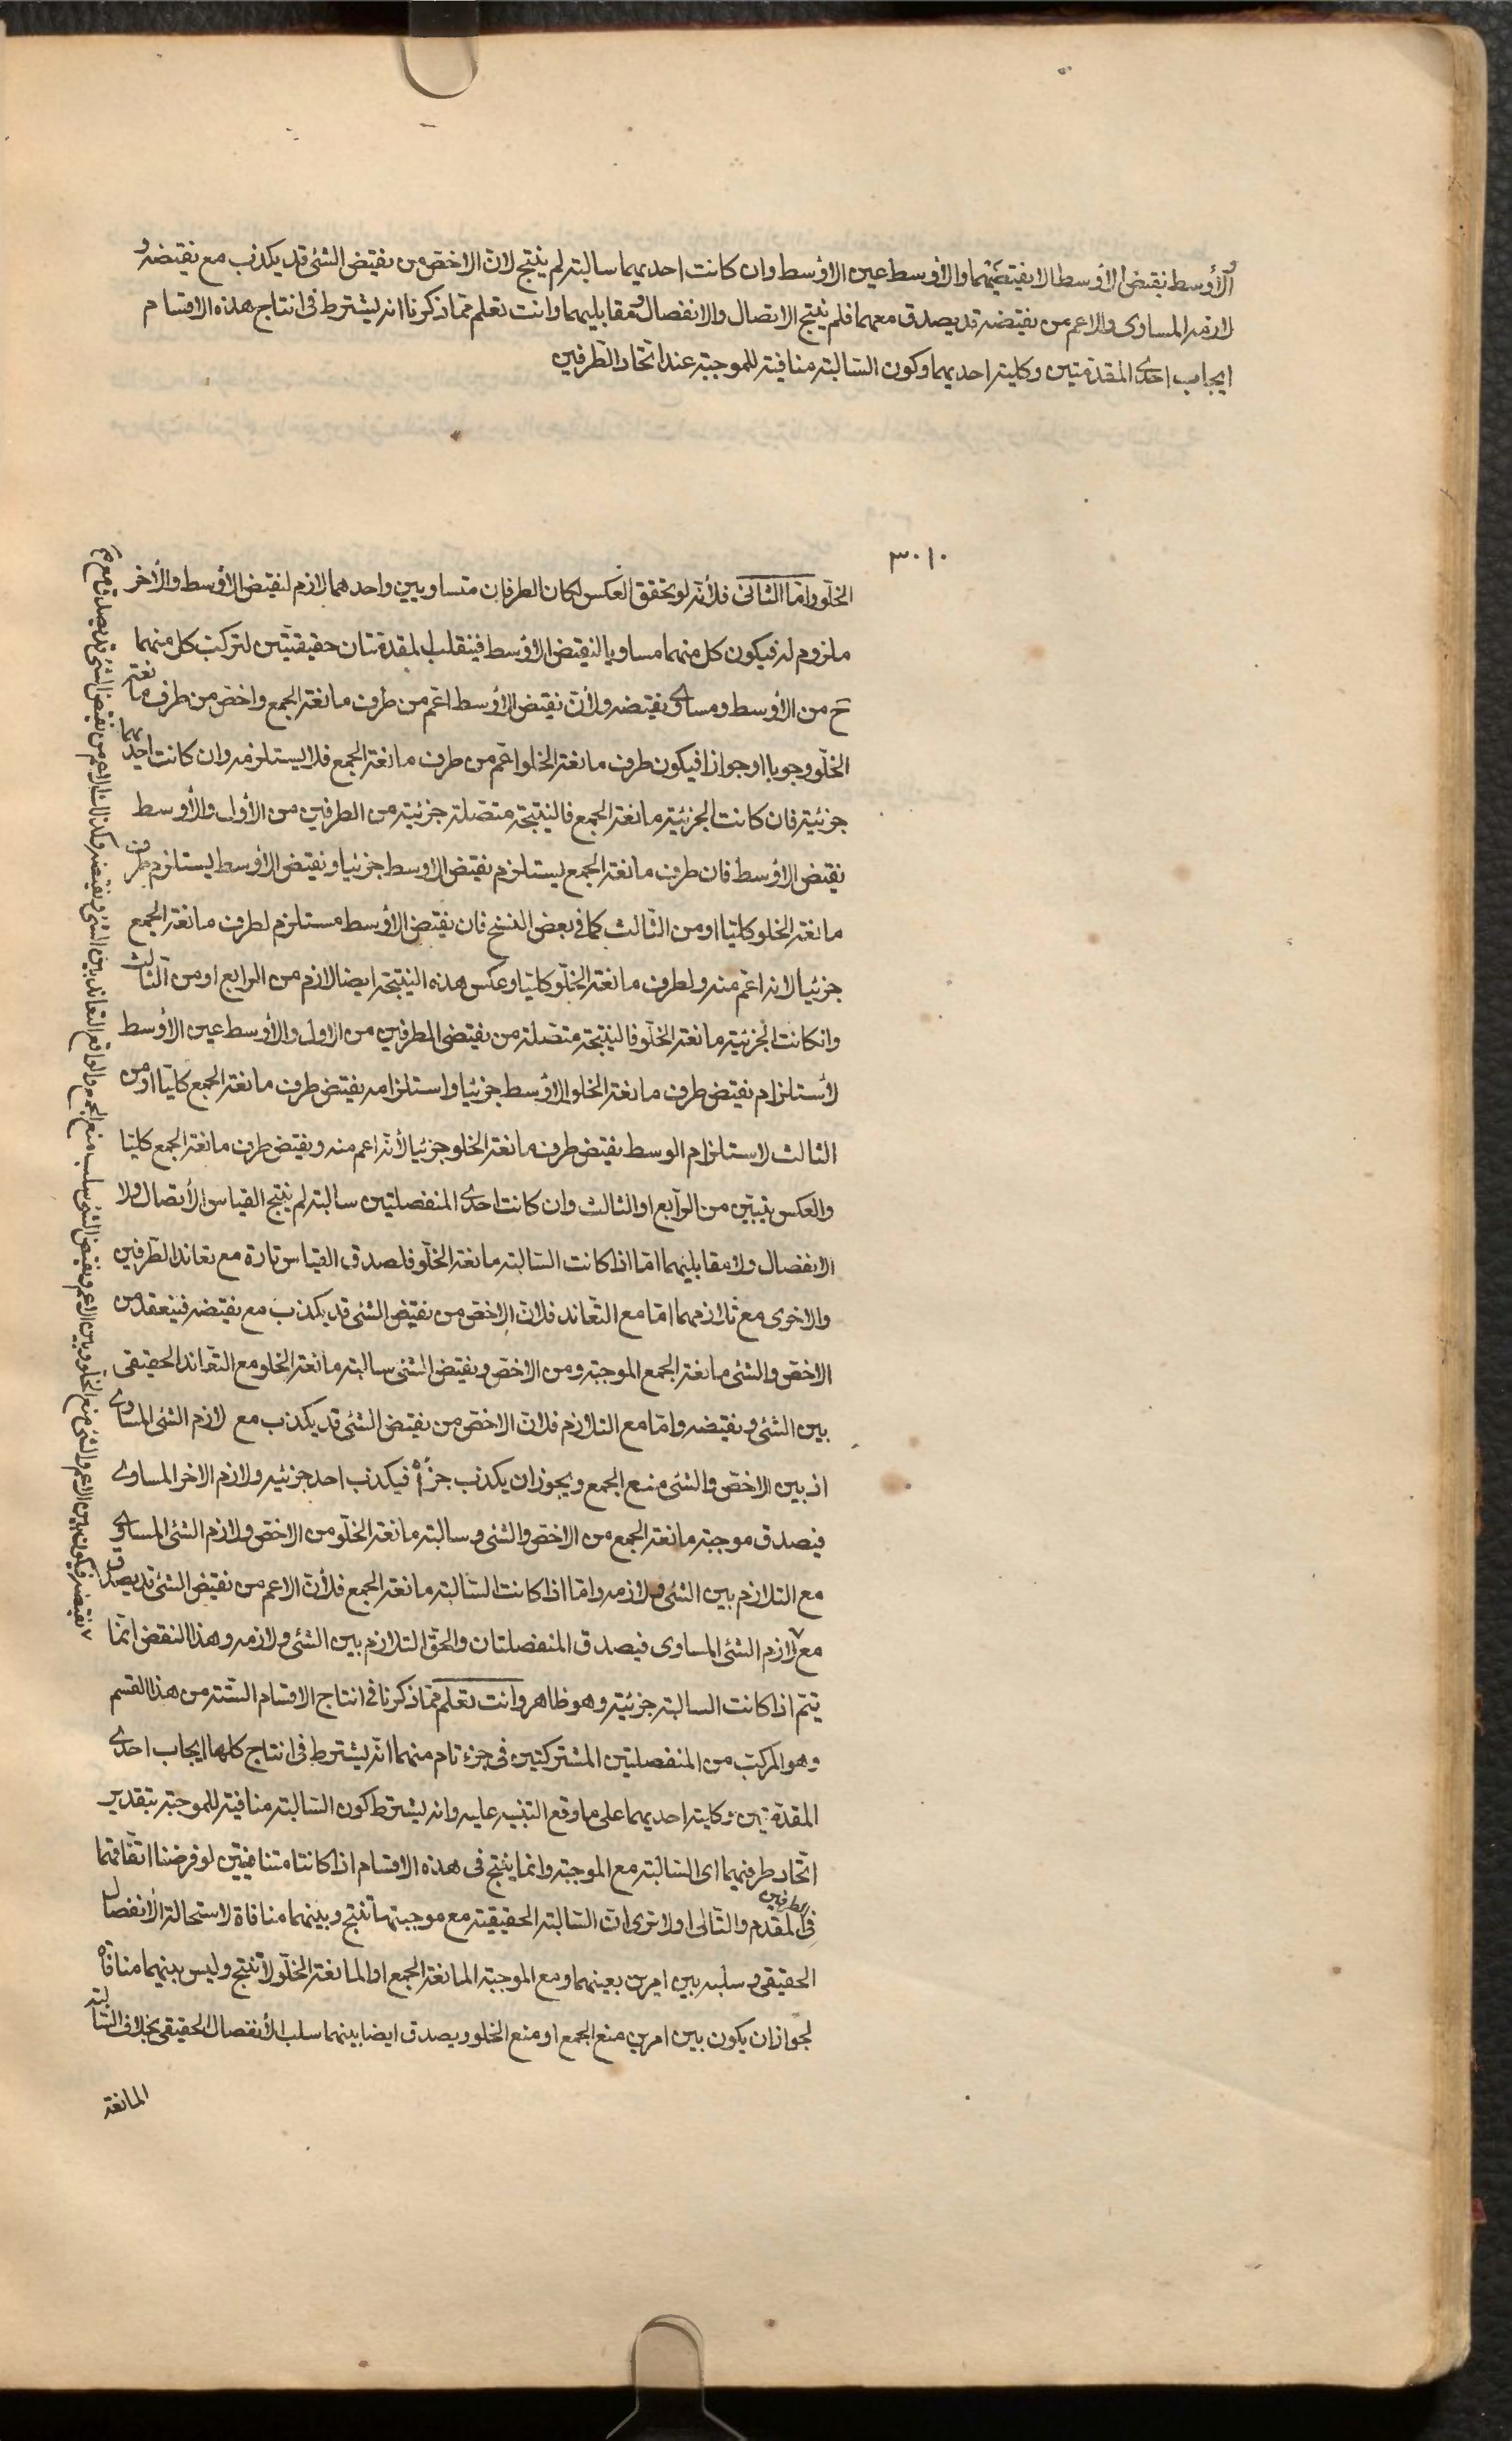 والأوسط نقيض الأوسط لا نقيضيهما والأوسط عين الأوسط وان كانت احديهما سالبة لم ينتج لان الاخص من نقيض الشئ قد يكذب مع نقيضه و
لازمه المساوى والاعم من نقيضه قد يصدق معهما فلم ينتج الاتصال والانفصال ومقابليهما وانت تعلم مما ذكرنا انه يشترط فى انتاج هذه الاقسام
ايجاب احدى المقدمتين وكلية احديهما وكون السالبة منافية للموجبة عند اتحاد الطرفين
الخلو واما الثانى فلأنه لو تحقق العكس لكان الطرفان متساويين واحدهما لازم لنقيض الأوسط والأخر
ملزوم له فيكون كل منهما مساويا لنقيض الأوسط فينقلب المقدمتان حقيقيتين لتركب كل منهما
ح من الأوسط ومساوى نقيضه ولأن نقيض الأوسط اعم من طرف مانعة الجمع واخص من طرف مانعة
الخلو وجوبا او جوازا فيكون طرف مانعة الخلو اعم من طرف مانعة الجمع فلا يستلزمه وان كانت احديهما
جزئية فان كانت الجزئية مانعة الجمع فالنتيجة متصلة جزئية من الطرفين من الأول والأوسط
نقيض الأوسط فان طرف مانعة الجمع يستلزم نقيض الاوسط جزئيا ونقيض الأوسط يستلزم طرف
مانعة الخلو كليا او من الثالث كما فى بعض النسخ فان نقيض الأوسط مستلزم لطرف مانعة الجمع
جزئيا لانه اعم منه ولطرف مانعة الخلو كليا وعكس هذه النتيجة ايضا لازم من الرابع او من الثالث
وان كانت الجزئية مانعة الخلو فالنتيجة متصلة من نقيضى الطرفين من الاول والأوسط عين الأوسط
لأستلزام نقيض طرف مانعة الخلو الأوسط جزئيا واستلزامه نقيض طرف مانعة الجمع كليا او من
الثالث لاستلزام الوسط نقيض طرف مانعة الخلو جزئيا لأنه اعم منه ونقيض طرف مانعة الجمع كليا
والعكس يتبين من الرابع او الثالث وان كانت احدى المنفصلتين سالبة لم ينتج القياس الأتصال ولا
الانفصال ولا مقابليهما اما اذا كانت السالبة مانعة الخلو فلصدق القياس تارة مع تعاند الطرفين
والاخرى مع تلازمهما اما مع التعاند فلان الاخص من نقيض الشئ قد يكذب مع نقيضه فينعقد من
الاخص والشئ مانعة الجمع الموجبة ومن الاخص ونقيض الشئ سالبة مانعة الخلو مع التعاند الحقيقى
بين الشئ ونقيضه واما مع التلازم فلان الاخص من نقيض الشئ قد يكذب مع لازم الشئ المساوى
اذ بين الاخص والشئ منع الجمع ويجوز ان يكذب جزءاه فيكذب احد جزئيه ولازم الاخر المساوى
فيصدق موجبة مانعة الجمع من الاخص والشئ وسالبة مانعة الخلو من الاخص ولازم الشئ المساوى
مع التلازم بين الشئ ولازمه واما اذا كانت السالبة مانعة الجمع فلأن الاعم من نقيض الشئ قد يصدق
مع لازم الشئ المساوى فيصدق المنفصلتان والحق التلازم بين الشئ ولازمه وهذا النقض انما
يتم اذا كانت السالبة جزئية وهو ظاهر وانت تعلم مما ذكرنا فى انتاج الاقسام الستة من هذا القسم
وهو المركب من المنفصلتين المشتركتين فى جزء تام منهما انه يشترط فى انتاج كلها ايجاب احدى
المقدمتين وكلية احديهما على ما وقع التنبيه عليه وانه يشترط كون السالبة منافية للموجبة بتقدير
اتحاد طرفيهما اى السالبة مع الموجبة وانما ينتج فى هذه الاقسام اذا كانتا متنافيتين لو فرضنا اتفاقهما
فى الطرفين المقدم والتالى اولا ترى ان السالبة الحقيقية مع موجبتها تنتج وبينهما منافاة لاستحالة الأنفصال
الحقيقى وسلبه بين امرين بعينهما ومع الموجبة المانعة الجمع او المانعة الخلو لا تنتج وليس بينهما منافاة
لجواز ان يكون بين امرين منع الجمع او منع الخلو ويصدق ايضا بينهما سلب الأنفصال الحقيقى بخلاف السالبة
المانعة
نقيضه فيكون بين الاعم والشئ منع الخلو وبين الاعم ونقيض الشئ سلب منع الجمع والواقع التعاند بين الشئ ونقيضه وكذا الاعم من نقيض الشئ قد يصدق مع
٣٠١٠